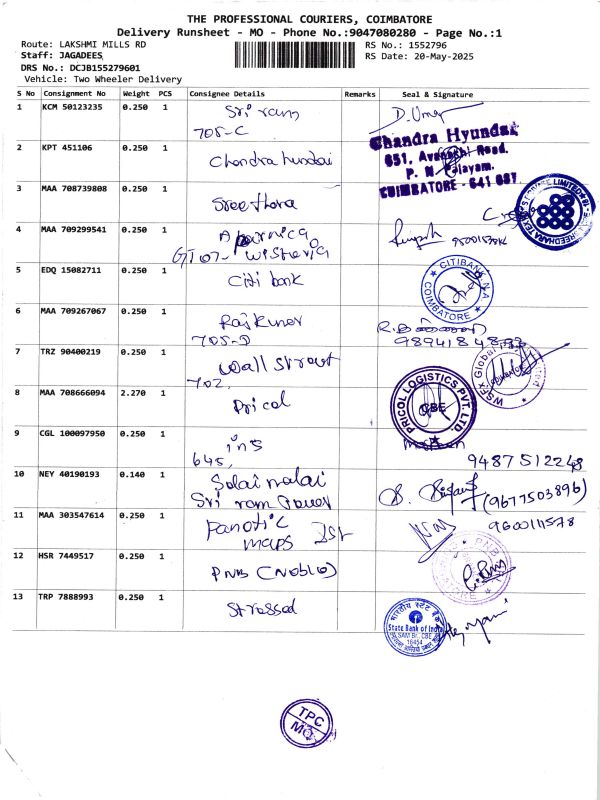 THE PROFESSIONAL COURIERS, COIMBATORE
Delivery Runsheet - MO - Phone No.:9047080280 - Page No.:1
Route: LAKSHMI MILLS RD
RS No.: 1552796
Staff: JAGADEES
RS Date: 20-May-2025
DRS No.: DCJB155279601
Vehicle: Two Wheeler Delivery
S No Consignment No Weight PCS Consignee Details Remarks Seal & Signature
1 KCM 50123235 0.250 1 Sri ram D. Umar
705-C
2 KPT 451106 0.250 1 Chandra hundai
Chandra Hyundai
651, Avanashi Road.
P. N. Palayam.
COIMBATORE - 641 037
3 MAA 708739808 0.250 1 Sreethara
4 MAA 709299541 0.250 1 Aparnica
GT07- wisteria
5 EDQ 15082711 0.250 1 Citi bank
CITIBANK N.A.
COIMBATORE
6 MAA 709267067 0.250 1 Rajkumar
705-D
7 TRZ 90400219 0.250 1 wall street
702,
WSFX Global
8 MAA 708666094 2.270 1 Pricol
PRICOL LOGISTICS PVT. LTD.
CBE
9 CGL 100097950 0.250 1 ins
645,
9487512248
10 NEY 40190193 0.140 1 Solai malai
Sri ram Tower
(9677503896)
11 MAA 303547614 0.250 1 Fanatic 9600111578
maps
12 HSR 7449517 0.250 1 PNB (Noble)
PNB
13 TRP 7888993 0.250 1 Stressed
भारतीय स्टेट बैंक
State Bank of India
SAM Br, CBE
16454
TPC
MO